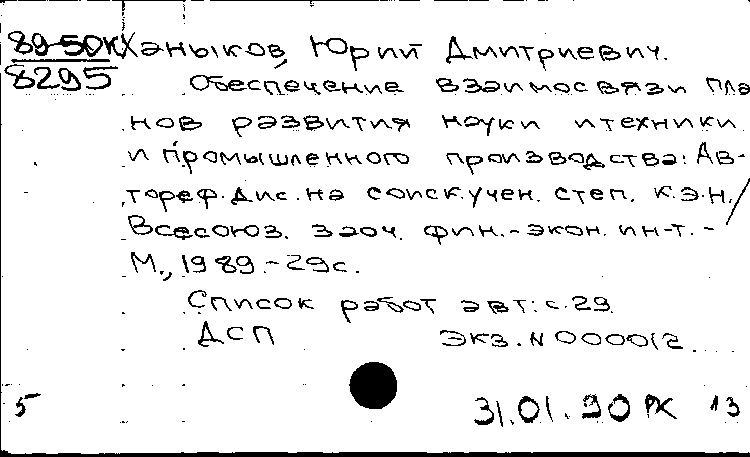 89-50К Ханыков, Юрий Дмитриевич.
8295 Обеспечение взаимосвязи пла
нов развития науки и техники
и промышленного производства: Ав-
тореф. дис. на соиск. учен. степ. к.э.н./
Всесоюз. заоч. фин.-экон. ин-т. -
М., 1989.-29с.
Список работ авт: с.29
ДСП Экз. N 000012
5 31.01.90 РК 13